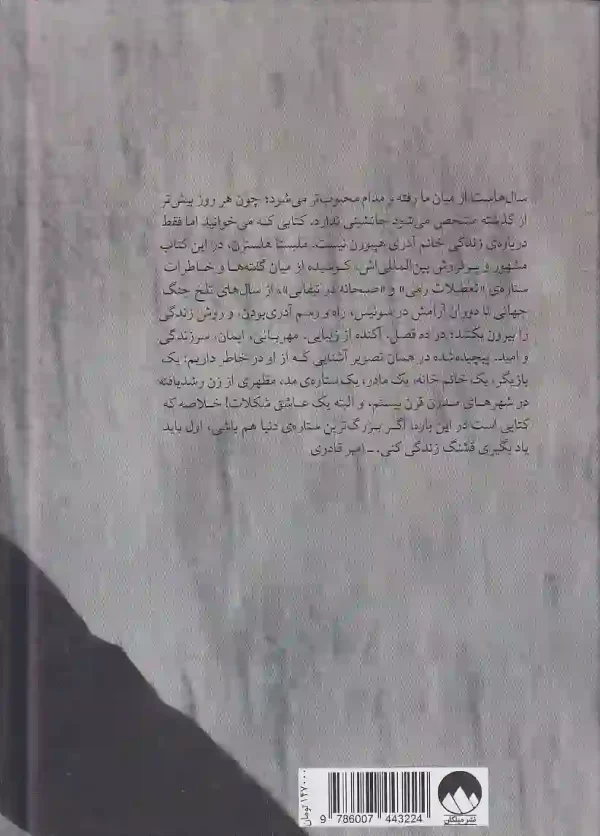 سال‌هاست از میان ما رفته و مدام محبوب‌تر می‌شود؛ چون هر روز بیش‌تر
از گذشته مشخص می‌شود جانشینی ندارد. کتابی که می‌خوانید اما فقط
درباره‌ی زندگی خانم آدری هیپورن نیست. ملیسا هلسترن، در این کتاب
مشهور و پرفروش بین‌المللی‌اش، کوشیده از میان گفته‌ها و خاطرات
ستاره‌ی «تعطیلات رمی» و «صبحانه در تیفانی»، از سال‌های تلخ جنگ
جهانی تا دوران آرامش در سوئیس، راه و رسم آدری‌بودن، و روش زندگی
را بیرون بکشد؛ در ده فصل. آکنده از زیبایی، مهربانی، ایمان، سرزندگی
و امید. پیچیده‌شده در همان تصویر آشنایی که از او در خاطر داریم: یک
بازیگر، یک خانم خانه، یک مادر، یک ستاره‌ی مد، مظهری از زن رشدیافته
در شهرهای مدرن قرن بیستم، و البته یک عاشق شکلات! خلاصه که
کتابی است در این باره، اگر بزرگ‌ترین ستاره‌ی دنیا هم باشی، اول باید
یاد بگیری قشنگ زندگی کنی. ـ امیر قادری
۱۴۷۰۰۰ تومان
9 786007 443224
نشر میلکان